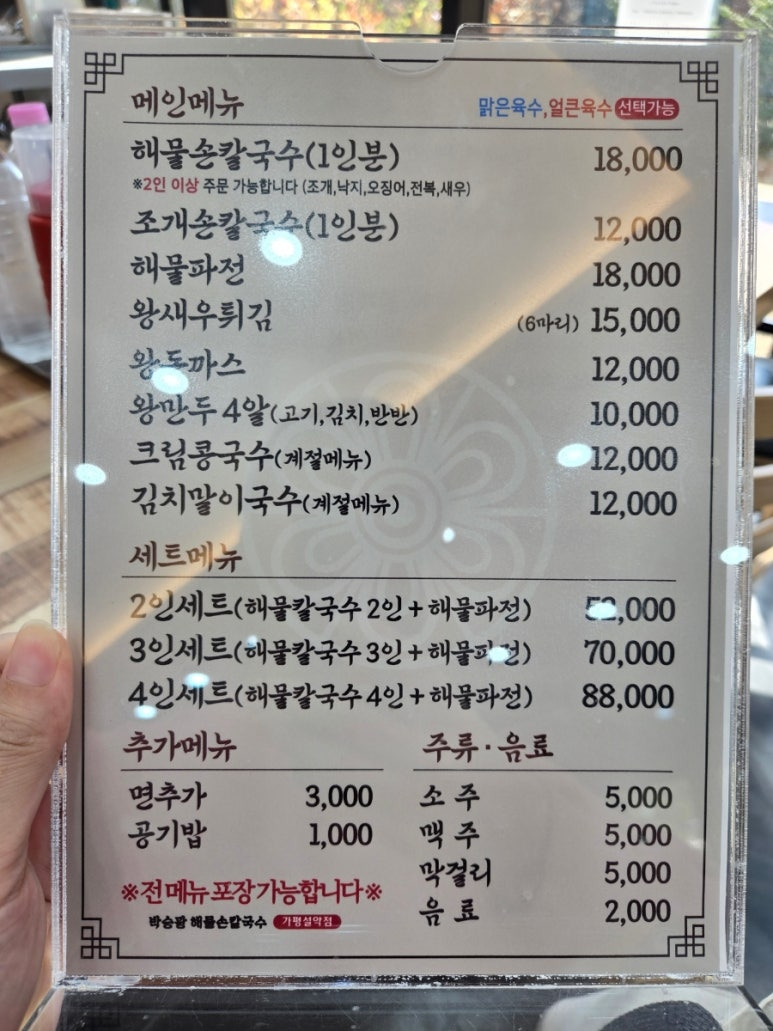 메인메뉴 맑은육수,얼큰육수 선택가능
해물손칼국수(1인분) 18,000
※2인 이상 주문 가능합니다 (조개,낙지,오징어,전복,새우)
조개손칼국수(1인분) 12,000
해물파전 18,000
왕새우튀김 (6마리) 15,000
왕돈까스 12,000
왕만두 4알(고기,김치,반반) 10,000
크림콩국수(계절메뉴) 12,000
김치말이국수(계절메뉴) 12,000
세트메뉴
2인세트(해물칼국수 2인+해물파전) 52,000
3인세트(해물칼국수 3인+해물파전) 70,000
4인세트(해물칼국수 4인+해물파전) 88,000
추가메뉴
면추가 3,000
공기밥 1,000
※전메뉴 포장가능합니다※
박승광 해물손칼국수 가평설악점
주류·음료
소 주 5,000
맥 주 5,000
막걸리 5,000
음 료 2,000